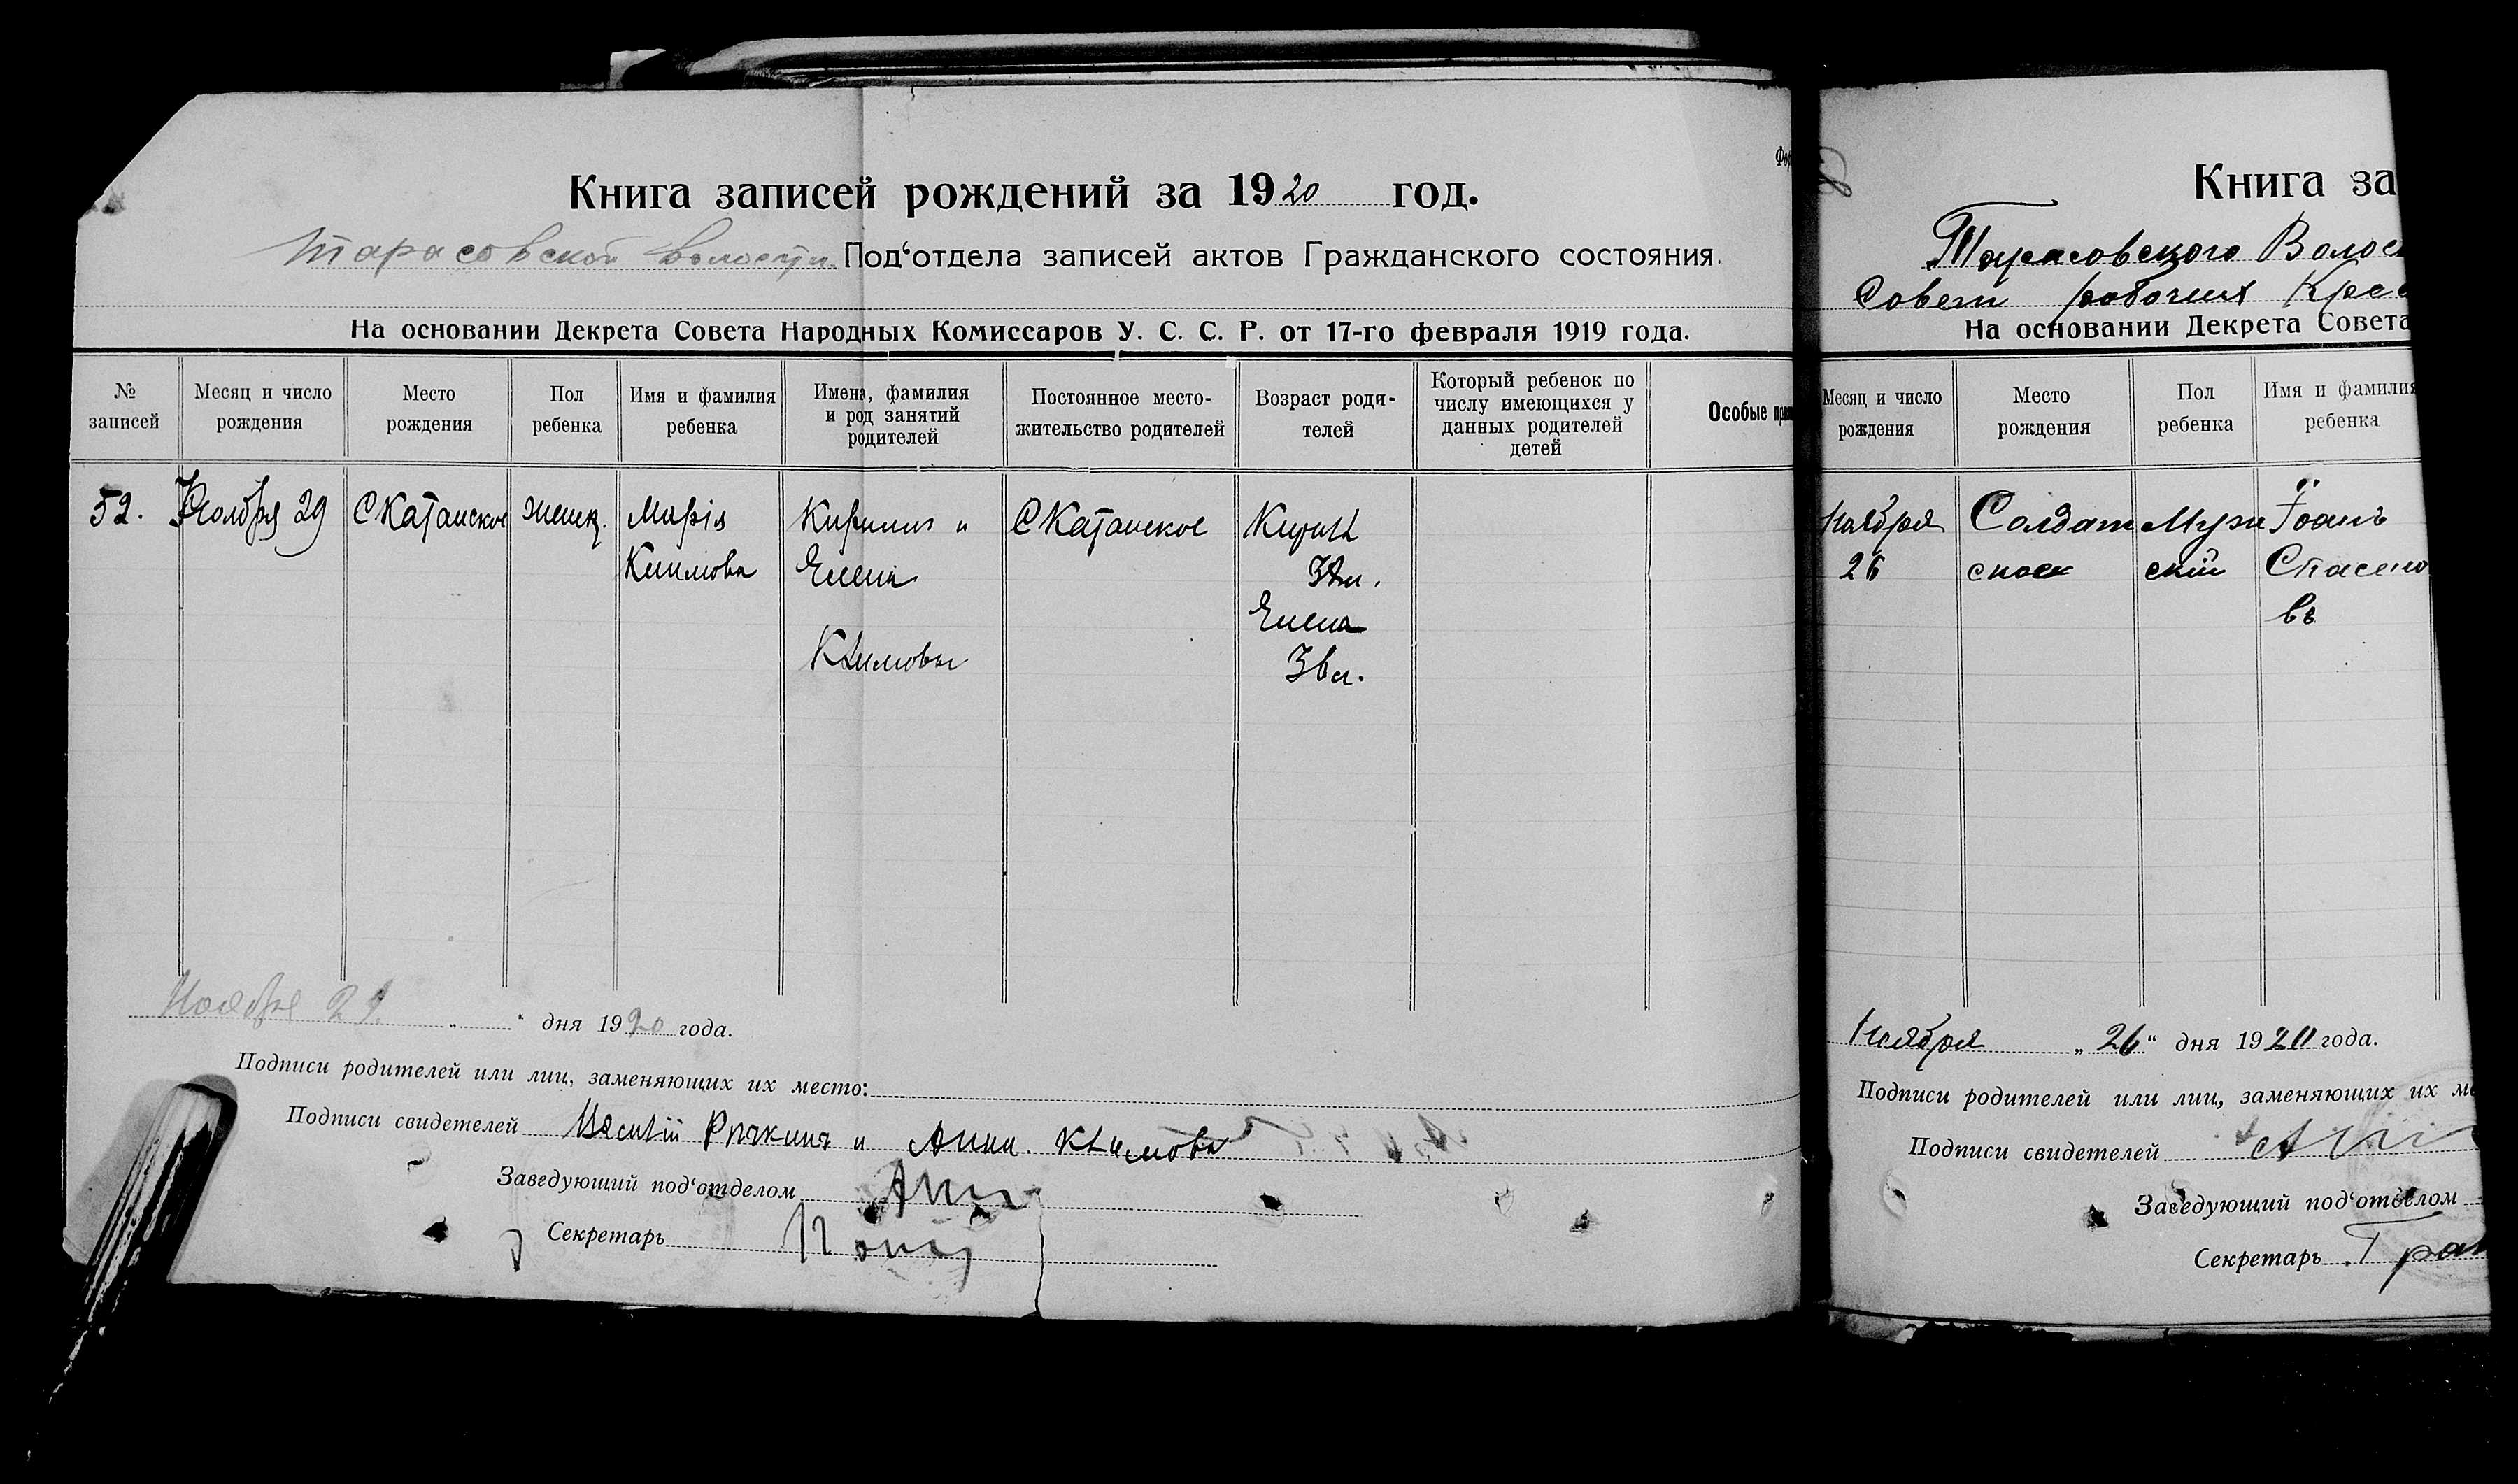 Книга записей рождений за 1920 год.
Тарасовской волости Под‘отдела записей актов Гражданского состояния.
На основании Декрета Совета Народных Комиссаров У. С. С. Р. от 17-го февраля 1919 года.
№ записей
Месяц и число рождения
Место рождения
Пол ребенка
Имя и фамилия ребенка
Имена, фамилия и род занятий родителей
Постоянное место-жительство родителей
Возраст роди-телей
Который ребенок по числу имеющихся у данных родителей детей
Особые
52.
Ноября 29
С Катанское
женск.
Марія
Климова
Кирилл и
Елена
Климовы
С Катанское
Кирилл
Елена
36 л.
Ноября 29. „ “ дня 1920 года.
Подписи родителей или лиц, заменяющих их место:
Подписи свидетелей Василій и Анна Климова
Заведующий под‘отделом
Секретарь
Книга за
Тарасовского Волос
Совета рабочих Крес
На основании Декрета Совета
Месяц и число рождения
Место рождения
Пол ребенка
Имя и фамилия ребенка
Ноября
26
Солдат
ское
Муж
скій
Іоанъ
Стасено
въ
Ноября „26“ дня 1920 года.
Подписи родителей или лиц, заменяющих их ме
Подписи свидетелей
Заведующий под‘отделом
Секретарь